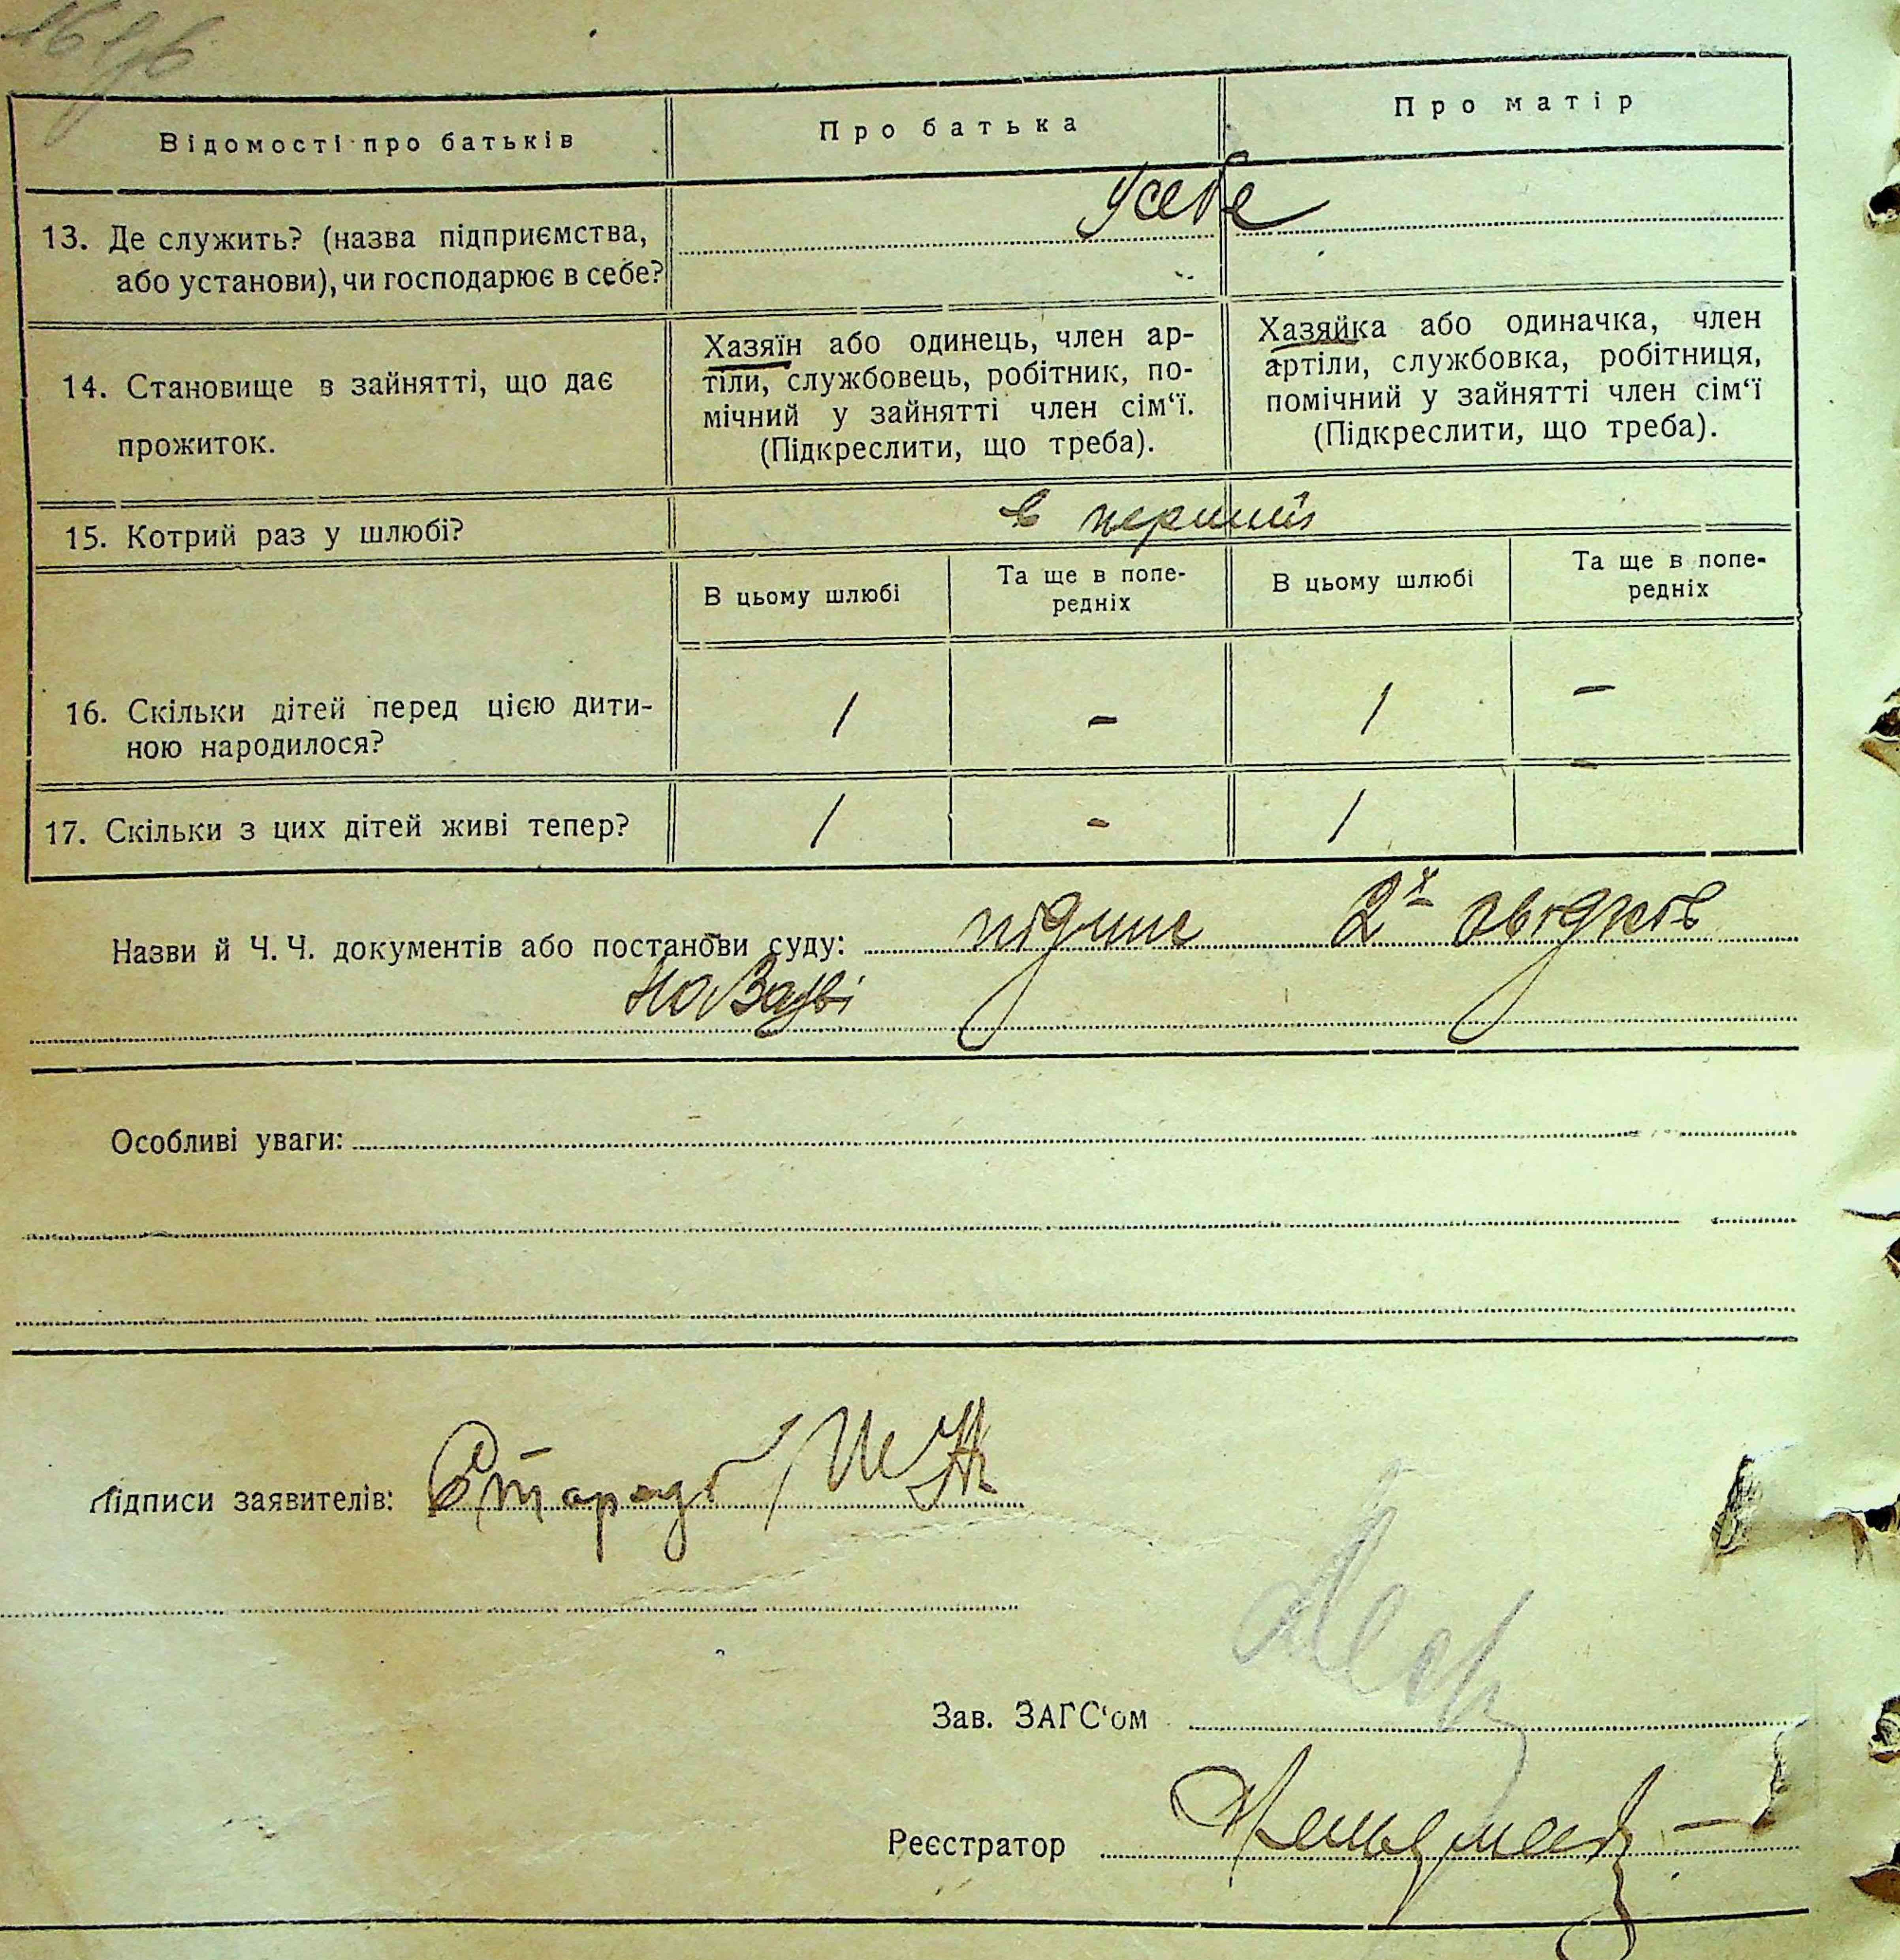 Відомості про батьків
Про батька
Про матір
13. Де служить? (назва підприємства,
або установи), чи господарює в себе?
у себе
14. Становище в зайнятті, що дає
прожиток.
Хазяїн або одинець, член ар-
тіли, службовець, робітник, по-
мічний у зайнятті член сім‘ї.
(Підкреслити, що треба).
Хазяйка або одиначка, член
артіли, службовка, робітниця,
помічний у зайнятті член сім‘ї
(Підкреслити, що треба).
15. Котрий раз у шлюбі?
в перший
В цьому шлюбі
Та ще в попе-
редніх
В цьому шлюбі
Та ще в попе-
редніх
16. Скільки дітей перед цією дити-
ною народилося?
1 - 1 -
17. Скільки з цих дітей живі тепер?
1 - 1 -
Назви й Ч. Ч. документів або постанови суду: підпис 2х свідків
Особливі уваги:
Підписи заявителів:
Зав. ЗАГС‘ом
Реєстратор